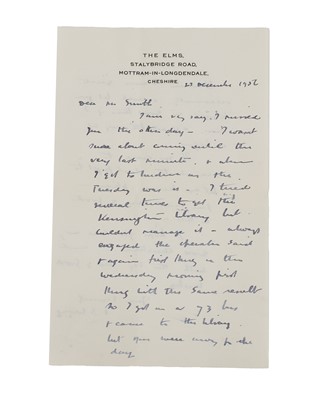 THE ELMS,
STALYBRIDGE ROAD,
MOTTRAM-IN-LONGDENDALE,
CHESHIRE
Dear Mr Smith.
I am very sorry I missed
you this other day - I wasn't
sure about coming until the
very last minute, & when
I got to London on this
Tuesday was it - I tried
several times to get the
Kensington library but
couldn't manage it - always
engaged the operator said
& again first thing on this
Wednesday morning first
thing with the same result
so I got on a 73 bus
& came to the library.
but you were away for the
day.